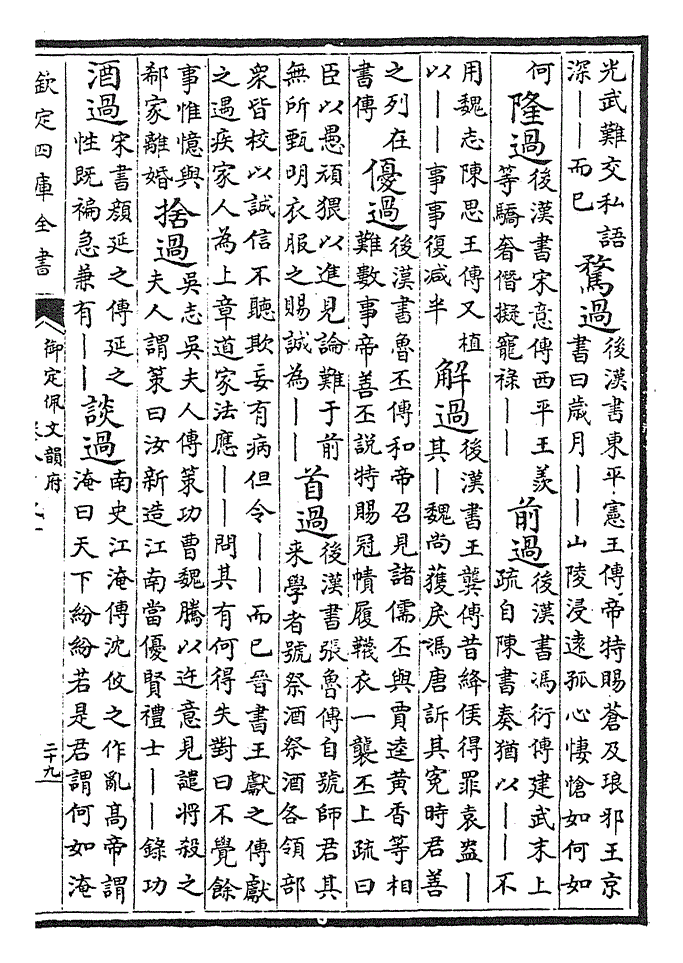 光武難交私語
深——而已
騖過
後漢書東平憲王傳帝特賜蒼及琅邪王京
書曰歲月——山陵浸遠孤心悽愴如何如
何
隆過
後漢書宋意傳西平王羨
等驕奢僭擬寵祿——
前過
後漢書馮衍傳建武末上
疏自陳書奏猶以——不
用魏志陳思王傳又植
以——事事復減半
解過
後漢書王龔傳昔絳侯得罪袁盎—
其—魏尚獲戾馮唐訴其寃時君善
之列在
書傳
優過
後漢書魯丕傳和帝召見諸儒丕與賈逵黄香等相
難數事帝善丕說特賜冠幘履韈衣一襲丕上疏曰
臣以愚頑猥以進見論難于前
無所甄明衣服之賜誠為——
首過
後漢書張魯傳自號師君其
来學者號祭酒祭酒各領部
衆皆校以誠信不聽欺妄有病但令——而已晉書王獻之傳獻
之遇疾家人為上章道家法應——問其有何得失對曰不覺餘
事惟憶與
郗家離婚
捨過
吳志吳夫人傳策功曹魏騰以迕意見譴將殺之
夫人謂策曰汝新造江南當優賢禮士——錄功
酒過
宋書顔延之傳延之
性既褊急兼有——
談過
南史江淹傳沈攸之作亂髙帝謂
淹曰天下紛紛若是君謂何如淹
欽定四庫全書
御定佩文韻府
二十九